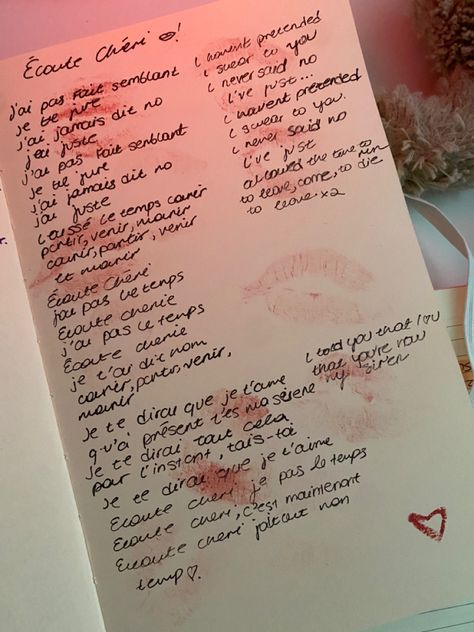 Écoute Chéri !
j'ai pas fait semblant
je te jure
j'ai jamais dit no
j'ai juste
j'ai pas fait semblant
je te jure
j'ai jamais dit no
j'ai juste
laissé le temps courir
partir, venir, mourir
courir, partir, venir
et mourir
Écoute Chéri
j'ai pas le temps
Écoute cherie
j'ai pas le temps
Écoute cherie
je t'ai dit nom
courir, partir, venir,
mourir
Je te dirai que je t'aime
q'u'ai présent t'es ma sérène
je te dirai tout cela
pour l'instant, tais-toi
Je te dirai que je t'aime
Écoute cheri je pas le temps
Écoute cheri, c'est maintenant
Écoute cheri joitout non
temp ♡.
I havent pretended
I swear to you
I never said no
I've just...
I havent pretended
I swear to you.
I never said no
I've just
allowed the time to run
to leave, come, to die
to leave x2
I told you that I ♡ u
that you're now
my siren